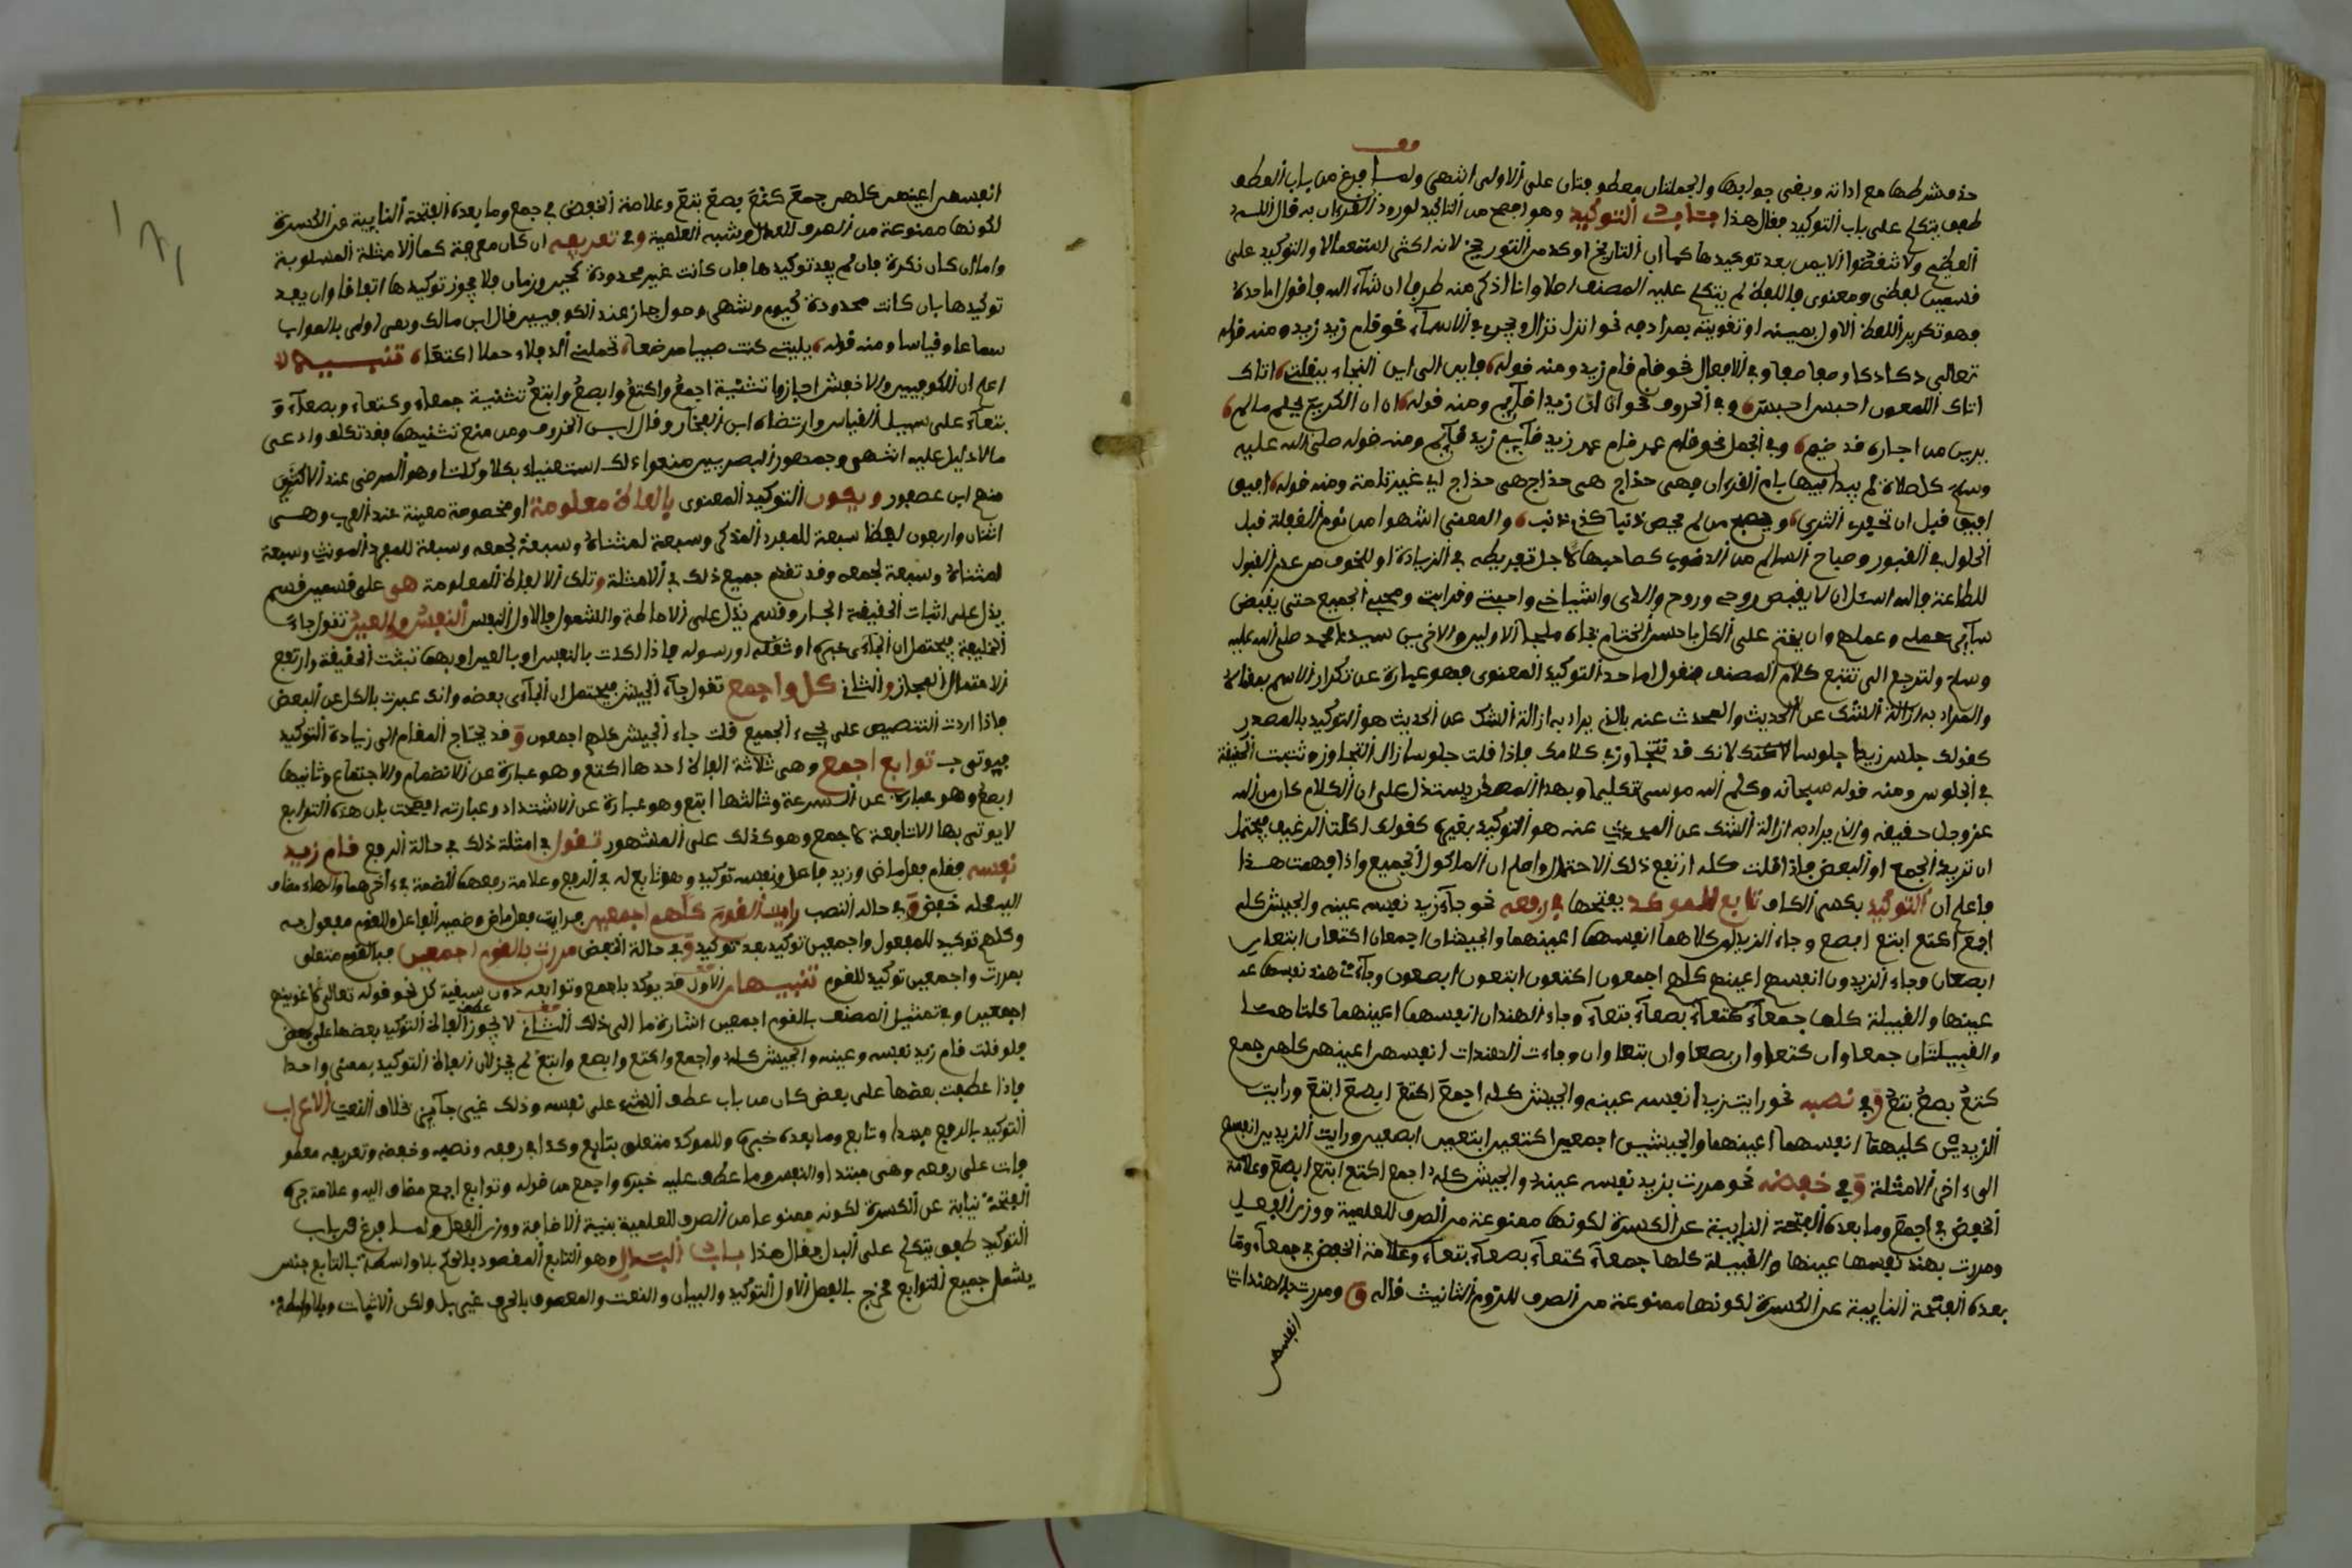 حذف شرطها مع اداته وبقى جوابها والجملتان معطوفتان على الاولى انتهى ولما فرغ من باب العطف
طفق يتكلم على باب التوكيد فقال هذا باب التوكيد وهو افصح من التاكيد لوروذ القرءان به قال الله
العظيم ولا تنقضوا الايمن بعد توكيدها كما ان التاريخ اوكد من التوريخ لانه اكثر استعمالا والتوكيد على
قسمين لفظي ومعنوي واللفظ لم يتكلم عليه المصنف اصلا وانا اذكر منه طرفا ان شاء الله فاقول اما حده
فهو تكرير اللفظ الاول بعينه او تقويته بمرادفه نحو انزل نزال ويجرى في الاسماء نحو قام زيد زيد ومنه قوله
تعالى دكا دكا وصفا صفا وفي الافعال نحو قام قام زيد ومنه قوله فاين الى اين النجاء ببغلتي اتاك
اتاك اللاحقون احبس احبس وفي الحروف نحو ان ان زيدا قآيم ومنه قوله ان ان الكريم يحلم ما لم
يرين من اجاره قد ضيم وفي الجمل نحو قام عمر قام عمر زيد قآيم زيد قآيم ومنه قوله صلى الله عليه
وسلم كل صلاة لم يبدا فيها بام القرءان فهي خداج هي خداج هي خداج اي غير تامة ومنه قوله افيق
افيق قبل ان تحفرء الثرى والمعنى انتبهوا من نوم الغفلة قبل
الحلول في القبور وصباح السالم من الذنوب كصاحبها لاجل تفريطه في الزيادة او للخوف من عدم القبول
للطاعة والله اسئل ان لا يقبض روحي وروح والدي واشياخي واحبتي وقرابتي ومحبي الجميع حتى يقبض
وسلم ولنرجع الى تتبع كلام المصنف فنقول اما حد التوكيد المعنوي فهو عبارة عن تكرار الاسم بمعناه
والمراد به ازالة الشك عن الحديث والمحدث عنه بالذي يراد به ازالة الشك عن الحديث هو التوكيد بالمصدر
كقولك جلس زيد جلوسا لانك قد تتجاوز في كلامك فاذا قلت جلوسا زال التجاوز وثبتت الحقيقة
في الجلوس ومنه قوله سبحانه وكلم الله موسى تكليما وبهذا المصدر يستدل على ان الكلام كان من الله
عز وجل حقيقة والذي يراد به ازالة الشك عن المحدث عنه هو التوكيد بغيره كقولك اكلت الرغيف يحتمل
ان تريد الجمع او البعض فاذا قلت كله ارتفع ذلك الاحتمال واعلم ان الماكول الجميع واذا فهمت هذا
فاعلم ان التوكيد بكسر الكاف تابع للموكد بفتحها في رفعه نحو جآء زيد نفسه عينه والجيش كله
اجمع اكتع ابتع ابصع وجاء الزيدان كلاهما انفسهما اعينهما والجيشان اجمعان اكتعان ابتعان
ابصعان وجاء الزيدون انفسهم اعينهم كلهم اجمعون اكتعون ابتعون ابصعون وجآءت هند نفسها
عينها والقبيلة كلها جمعآء كتعآء بصعآء بتعآء وجاء الهندان انفسهما اعينهما كلتاهما
والقبيلتان جمعاوان كتعاوان بصعاوان بتعاوان وجاءت الهندات انفسهن اعينهن كلهن جمع
كتع بصع بتع وفي نصبه نحو رايت زيدا نفسه عينه والجيش كله اجمع اكتع ابصع ابتع ورايت
الزيدين كليهما انفسهما اعينهما والجيشين اجمعين اكتعين ابتعين ابصعين ورايت الزيدين انفسهم
الى ءاخر الامثلة وفي خفضه نحو مررت بزيد نفسه عينه والجيش كله اجمع اكتع ابتع ابصع وعلامة
الخفض في اجمع وما بعده الفتحة النايبة عن الكسرة لكونها ممنوعة من الصرف للعلمية ووزن الفعل
ومررت بهند نفسها عينها والقبيلة كلها جمعآء كتعآء بصعآء بتعآء وعلامة الخفض في جمعآء وما
بعده الفتحة النايبة عن الكسرة لكونها ممنوعة من الصرف للزوم التانيث قاله ق ومررت بالهندات
انفسهن
انفسهن اعينهن كلهن جمع كتع بصع بتع وعلامة الخفض في جمع وما بعده الفتحة النايبة عن الكسرة
لكونها ممنوعة من الصرف للعدل وشبه العلمية وفي تعريفه ان كان معرفة كما الامثلة المسلوبة
واما ان كان نكرة فان لم يفد توكيدها فان كانت غير محدودة كحين وزمان فلا يجوز توكيدها اتفاقا وان يفيد
توكيدها بان كانت محدودة كيوم وشهر وحول جاز عند الكوفيين قال ابن مالك وهي اولى بالصواب
سماعا وقياسا ومنه قوله يليتي كنت صبيا مرضعا تحملني الذلفاء حولا اكتعا تنبيه
اعلم ان الكوفيين والاخفش اجازوا تثنية اجمع واكتع وابصع وابتع تثنية جمعاء وكتعاء وبصعآء و
بتعآء على سبيل القياس وارتضاه ابن الفخار وقال ابن الخروف ومن منع تثنيتها فقد تكلف وادعى
مالا دليل عليه انتهى وجمهور البصريين منعوا ذلك استغناء بكلا وكلتا وهو المرضي عند الاكثر
منهم ابن عصفور ويكون التوكيد المعنوي بالفاظ معلومة او مخصوصة معينة عند العرب وهي
اثنان واربعون لفظا سبعة للمفرد المذكر وسبعة لمثناه وسبعة لجمعه وسبعة للمفرد المونث وسبعة
لمثناه وسبعة لجمعه وقد تقدم جميع ذلك في الامثلة وتلك الالفاظ المعلومة هي على قسمين قسم
يدل على اثبات الحقيقة وقسم يدل على الاحاطة والشمول فالاول النفس والعين تقول جاء
الخليفة فيحتمل ان الجآءي خبره او ثقله او رسوله فاذا اكدت بالنفس او بالعين او بهما ثبتت الحقيقة وارتفع
الاحتمال المجاز والثاني كل واجمع تقول جآء الجيش فيحتمل ان الجآءي بعضه وانك عبرت بالكل عن البعض
فاذا اردت التنصيص على مجيء الجميع قلت جاء الجيش كلهم اجمعون وقد يحتاج المقام الى زيادة التوكيد
فيوتى بـ توابع اجمع وهي ثلاثة الفاظ احدها اكتع وهو عبارة عن الانضمام والاجتماع وثانيها
ابصع وهو عبارة عن السرعة وثالثها ابتع وهو عبارة عن الاشتداد وعبارته افصحت بان هذه التوابع
لا يوتى بها الا تابعة لاجمع وهو كذلك على المشهور تقول في امثلة ذلك في حالة الرفع قام زيد
نفسه فقام فعل ماض وزيد فاعل ونفسه توكيد وهو تابع له في الرفع وعلامة رفعهما الضمة في ءاخرهما والهاء مضاف
اليه محله خفض وفي حالة النصب رايت القوم كلهم اجمعين فرايت فعل ماض وضمير الفاعل والقوم مفعول به
وكلهم توكيد للمفعول واجمعين توكيد بعد توكيد وفي حالة الخفض مررت بالقوم اجمعين فبالقوم متعلق
بمررت واجمعين توكيد للقوم تنبيهان الاول قد يوكد باجمع وتوابعه دون سبقية كل نحو قوله تعالى لاغوينهم
اجمعين وفي تمثيل المصنف بالقوم اجمعين اشارة ما الى ذلك الثاني لا يجوز عطف الفاظ التوكيد بعضها على بعض
فلو قلت قام زيد نفسه وعينه والجيش كله واجمع واكتع وابصع وابتع لم يجز لان الفاظ التوكيد بمعنى واحد
فاذا عطفت بعضها على بعض كان من باب عطف الشيء على نفسه وذلك غير جآيز بخلاف النعت الاعراب
التوكيد بالرفع مبتدا وتابع وما بعده خبره وللموكد متعلق بتابع وكذا في رفعه ونصبه وخفضه وتعريفه معطو
فات على رفعه وهي مبتدا والنفس وما عطف عليه خبره واجمع من قوله وتوابع اجمع مضاف اليه وعلامة جره
الفتحة نيابة عن الكسرة لكونه ممنوعا من الصرف للعلمية بنية الاضافة ووزن الفعل ولما فرغ من باب
التوكيد طفق يتكلم على البدل فقال هذا باب البدل وهو التابع المقصود بالحكم بلا واسطة فالتابع جنس
يشمل جميع التوابع مخرج بالفصل الاول التوكيد والبيان والنعت والمعطوف بالحرف غير بل ولكن الاثبات وبلا واسطة